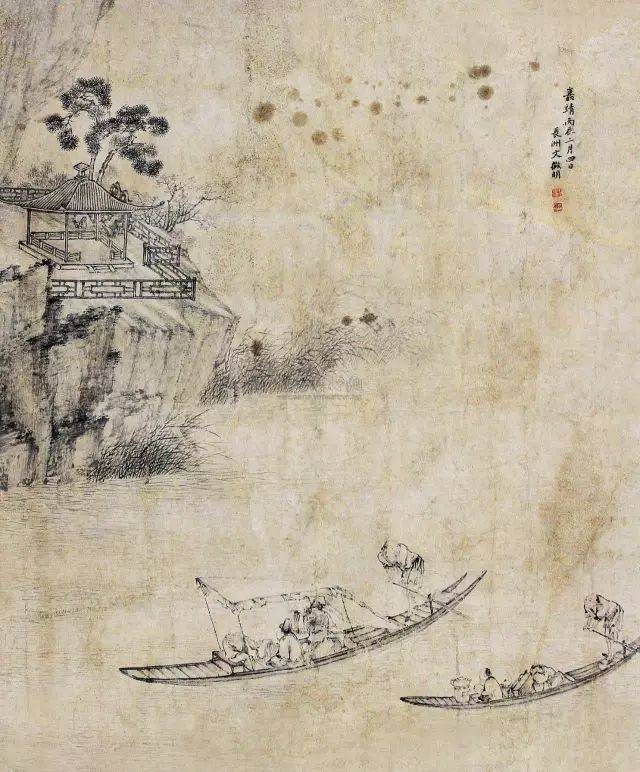 嘉靖丙辰二月四日
長洲文徵明